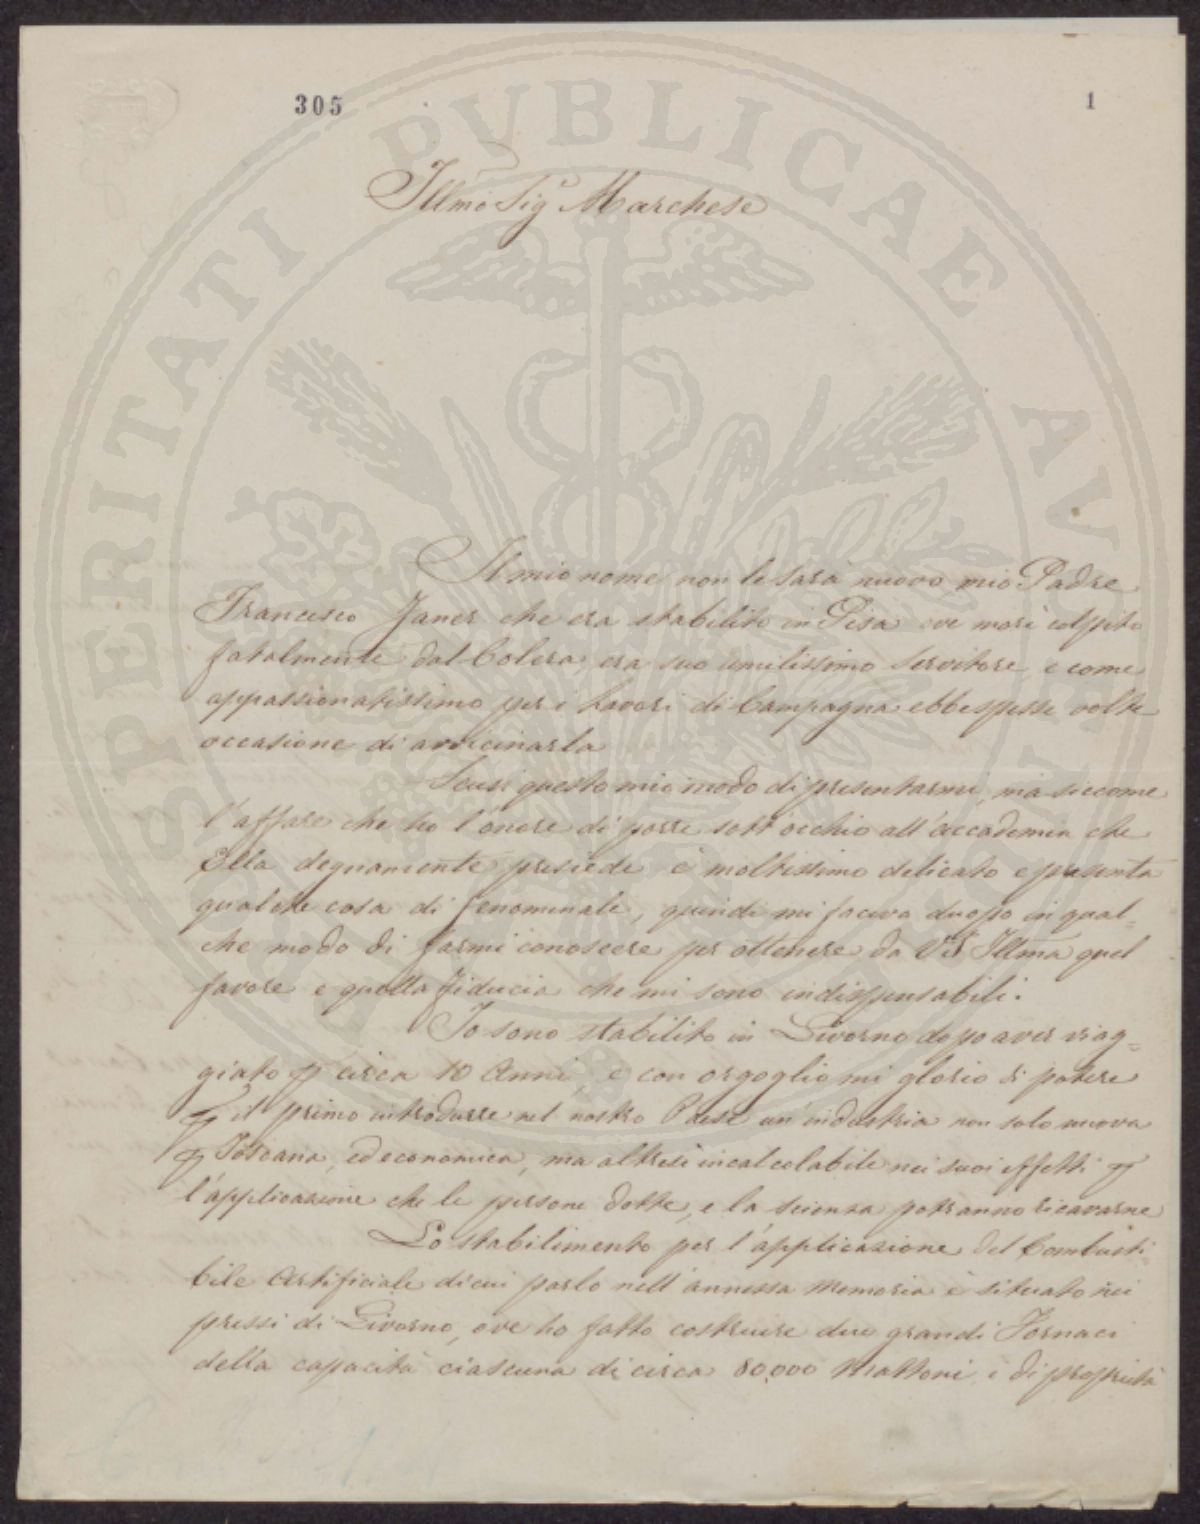 305
1
PROSPERITATI PVBLICAE AVGENDAE
Illmo Sig Marchese
Il mio nome non le sarà nuovo, mio Padre
Francesco Janer che era stabilito in Pisa ove morì colpito
fatalmente dal Colera, era suo umilissimo Servitore, e come
appassionatissimo per i Lavori di Campagna ebbe spesse volte
occasione di avvicinarla
Scusi questo mio modo di presentarmi, ma siccome
l'affare che ho l'onore di porre sott'occhio all'accademia che
Ella degnamente presiede è moltissimo delicato e presenta
qualche cosa di fenominale, quindi mi faceva duopo in qual=
che modo di farmi conoscere per ottenere da VS Illma quel
favore e quella fiducia che mi sono indispensabili.
Io sono stabilito in Livorno dopo aver viag=
giato p circa 10 Anni, e con orgoglio mi glorio di potere
p il primo introdurre nel nostro Paese un'industria non solo nuova
p Toscana, ed economica, ma altresì incalcolabile nei suoi effetti p
l'applicazione che le persone dotte, e la scienza potranno ricavarne
Lo stabilimento per l'applicazione del Combusti=
bile Artificiale di cui parlo nell'annessa Memoria è situato nei
pressi di Livorno, ove ho fatto costruire due grandi Fornaci
della capacità ciascuna di circa 80,000 Mattoni, i di proprietà